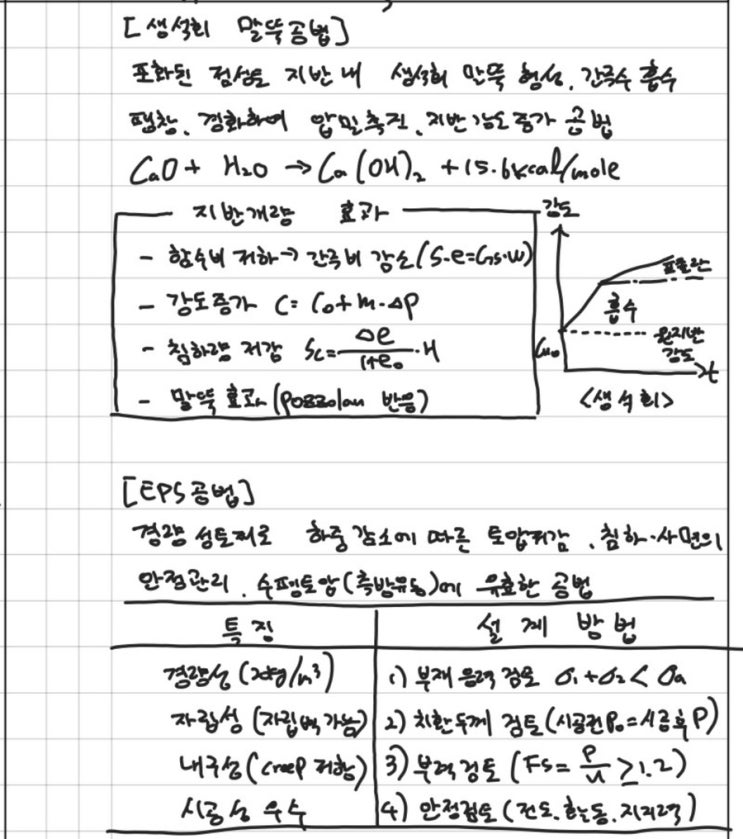 [생석회 말뚝공법]
포화된 점성토 지반 내 생석회 말뚝 형성, 간극수 흡수
팽창, 경화하여 압밀촉진, 지반강도증가 공법
CaO + H₂O → Ca(OH)₂ + 15.6kcal/mole
지반개량 효과
- 함수비 저하 → 간극비 감소 (S·e=Gs·w)
- 강도증가 C = C₀ + m·ΔP
- 침하량 저감 Sc = Δe/(1+e₀)·H
- 말뚝 효과 (pozzolan 반응)
강도
포졸란
흡수
Cu₀
원지반
강도
t
<생석회>
[EPS공법]
경량 성토재로 하중감소에 따른 토압저감, 침하·사면의
안정관리, 수평토압(측방유동)에 유효한 공법
특징
설계 방법
경량성 (20kg/m³)
1) 부재 응력 검토 σ₁+σ₂ < σa
자립성 (자립벽 가능)
2) 치환두께 검토 (시공전P₀=시공후P)
내구성 (creep 저항)
3) 부력검토 (Fs = P/u ≥ 1.2)
시공성 우수
4) 안정검토 (전도, 활동, 지지력)